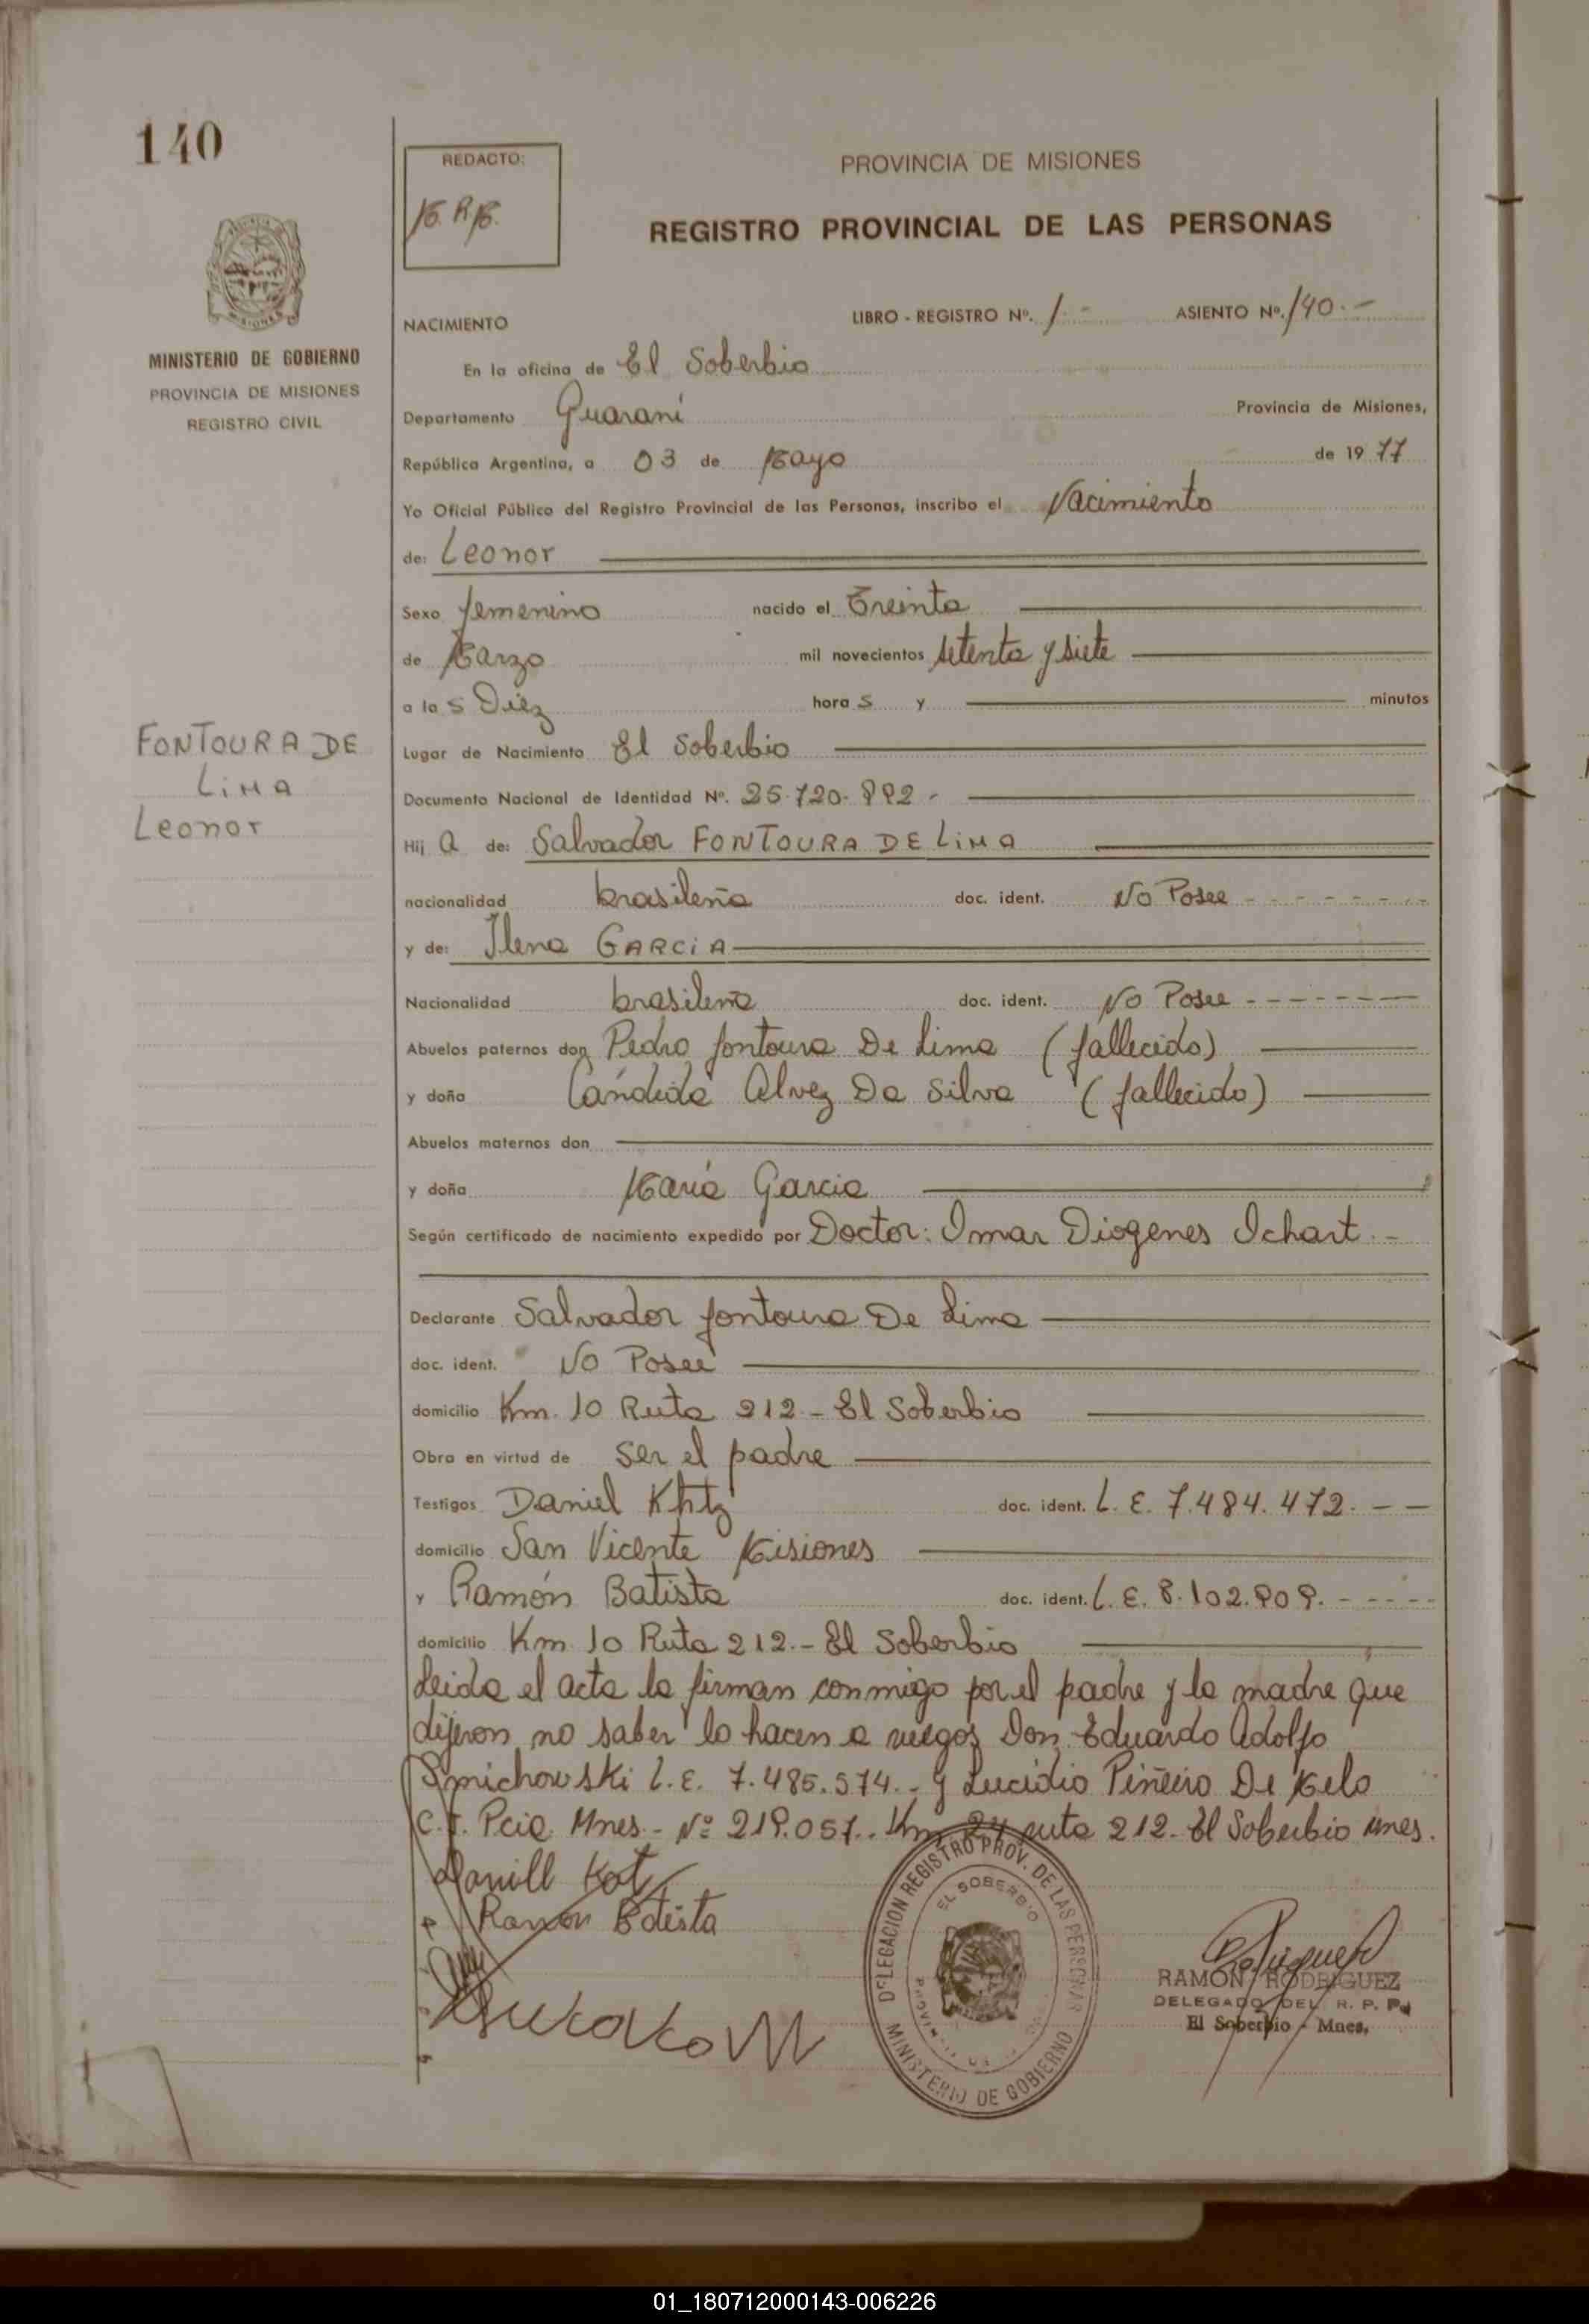 140
REDACTO:
PROVINCIA DE MISIONES
REGISTRO PROVINCIAL DE LAS PERSONAS
MINISTERIO DE GOBIERNO
PROVINCIA DE MISIONES
REGISTRO CIVIL
NACIMIENTO LIBRO - REGISTRO Nº. 1 - ASIENTO Nº. 140. -
En la oficina de El Soberbio
Departamento Guaraní Provincia de Misiones,
República Argentina, a 03 de Mayo de 1977
Yo Oficial Público del Registro Provincial de las Personas, inscribo el Nacimiento
de: Leonor
Sexo femenino nacido el Treinta
de Marzo mil novecientos setenta y siete
a las Diez horas y minutos
FONTOURA DE
LiMA
Leonor
Lugar de Nacimiento El Soberbio
Documento Nacional de Identidad Nº. 25.720.892 -
Hija de: Salvador FONTOURA DE LiMA
nacionalidad brasileña doc. ident. No Posee - - - - - - -
y de: Ilena GARCiA
Nacionalidad brasileña doc. ident. No Posee - - - - - - -
Abuelos paternos don Pedro fontoura De Lima (fallecido)
y doña Cándida Alvez Da Silva (fallecido)
Abuelos maternos don
y doña María Garcia
Según certificado de nacimiento expedido por Doctor: Omar Diogenes Ichart. -
Declarante Salvador fontoura De Lima
doc. ident. No Posee
domicilio Km. 10 Ruta 212 - El Soberbio
Obra en virtud de ser el padre
Testigos Daniel doc. ident. L. E. 7.484.472. - -
domicilio San Vicente Misiones
y Ramón Batista doc. ident. L. E. 8.102.909. - - - -
domicilio Km 10 Ruta 212. - El Soberbio
Leida el acta la firman conmigo por el padre y la madre que
dijeron no saber lo hacen a ruegos Don Eduardo Adolfo
L. E. 7.485.574. - y Lucidio Piñeiro De Melo
C. I. Pcia. Mnes. - Nº 219.057. . Km 24 ruta 212. El Soberbio mnes.
Ramon Batista
DELEGACION REGISTRO PROV. DE LAS PERSONAS
EL SOBERBIO
MINISTERIO DE GOBIERNO
RAMON RODRIGUEZ
DELEGADO DEL R. P. P.
El Soberbio - Mnes.
01_180712000143-006226